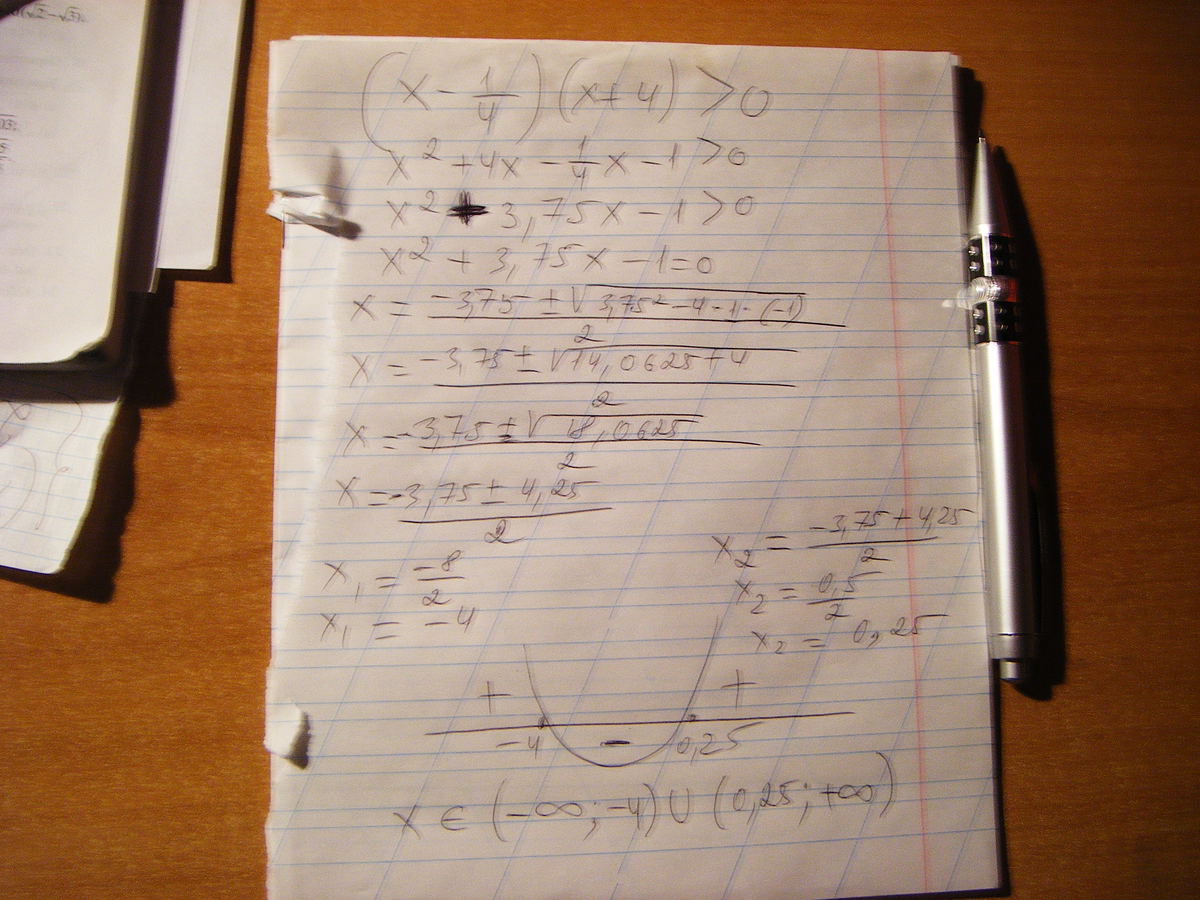 (√2 − √3)
(x − 1/4)(x + 4) > 0
x² + 4x − 1/4x − 1 > 0
x² + 3,75x − 1 > 0
x² + 3,75x − 1 = 0
x = (−3,75 ± √(3,75² − 4·1·(−1)))/2
x = (−3,75 ± √(14,0625 + 4))/2
x = (−3,75 ± √(18,0625))/2
x = (−3,75 ± 4,25)/2
x₁ = −8/2
x₁ = −4
x₂ = (−3,75 + 4,25)/2
x₂ = 0,5/2
x₂ = 0,25
+ +
−4 − 0,25
x ∈ (−∞; −4) ∪ (0,25; +∞)